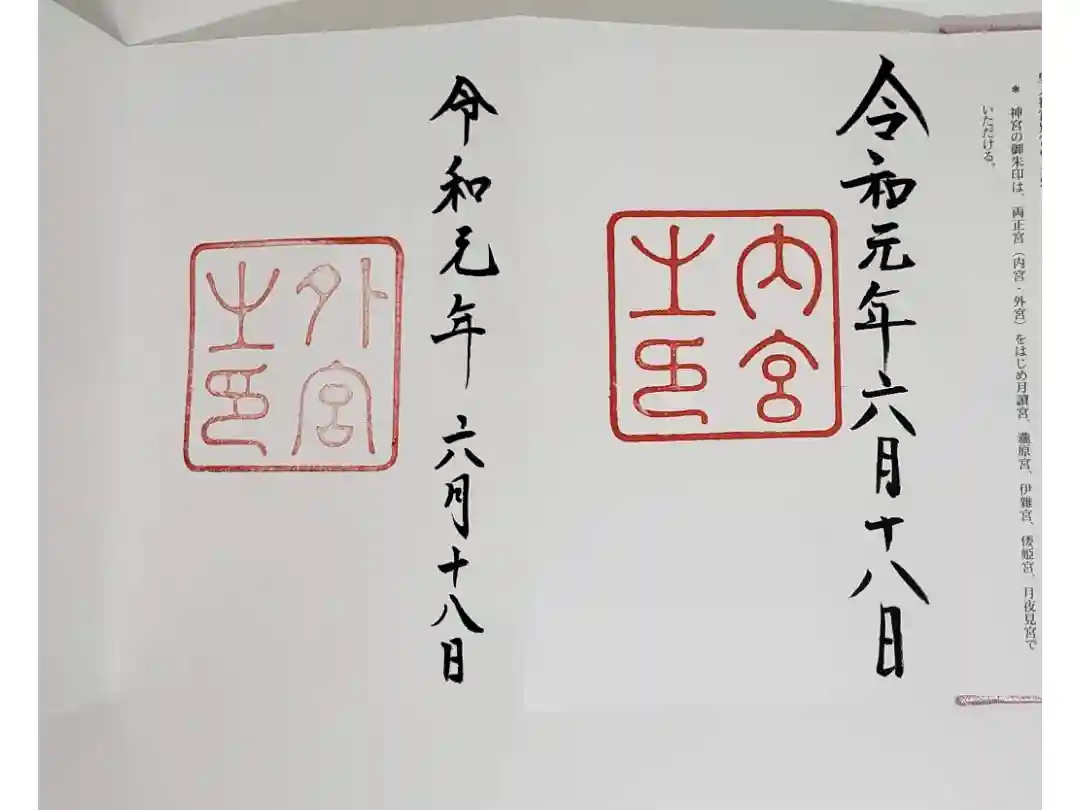 * 神宮の御朱印は、両正宮（内宮・外宮）をはじめ月讀宮、瀧原宮、伊雜宮、倭姫宮、月夜見宮で
いただける。
令和元年六月十八日
内宮
之印
令和元年六月十八日
外宮
之印